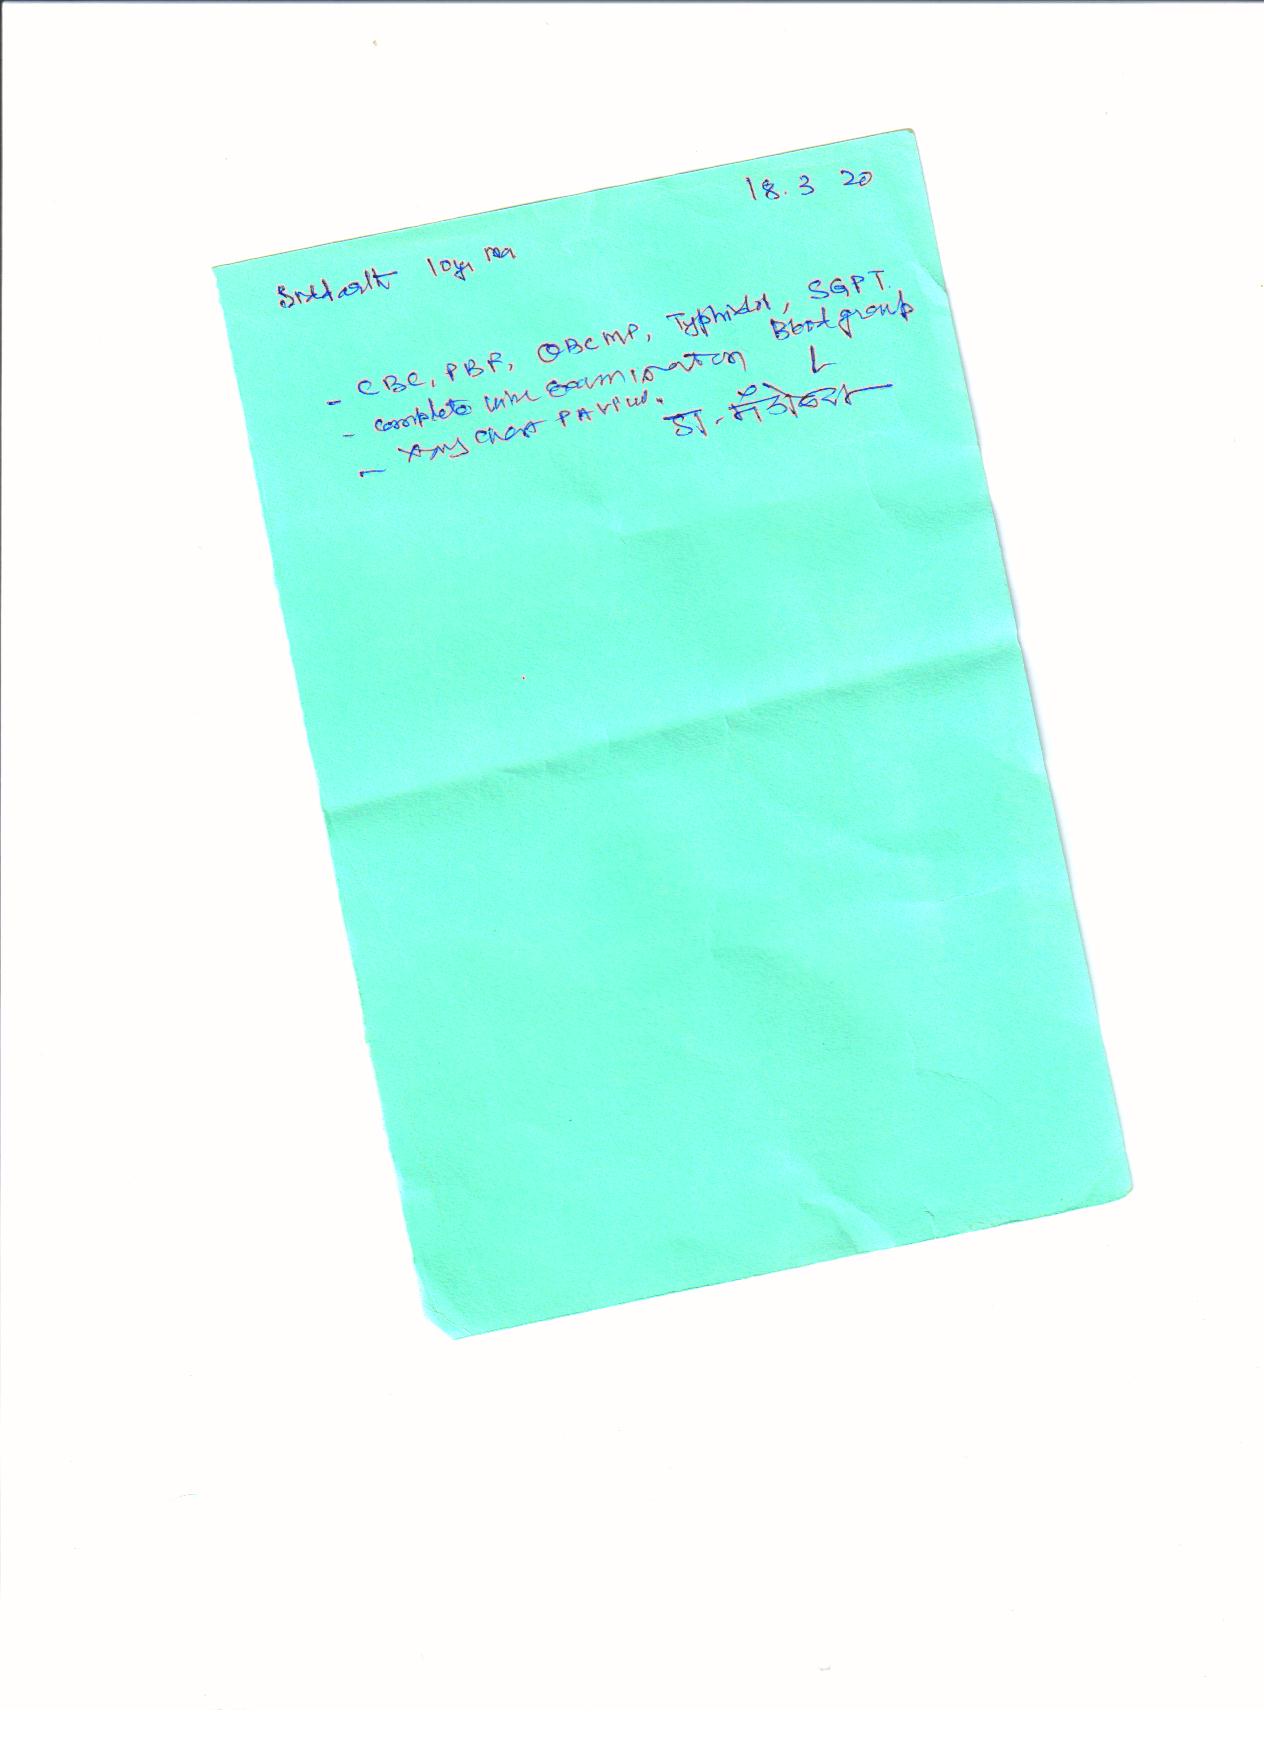 18.3 20
Siddarth 10yr, m
- CBC, PBF, QBCMP, Typhidot, SGPT.
Blood group
- complete urine examination
- Xray Chest PA view.
डा.